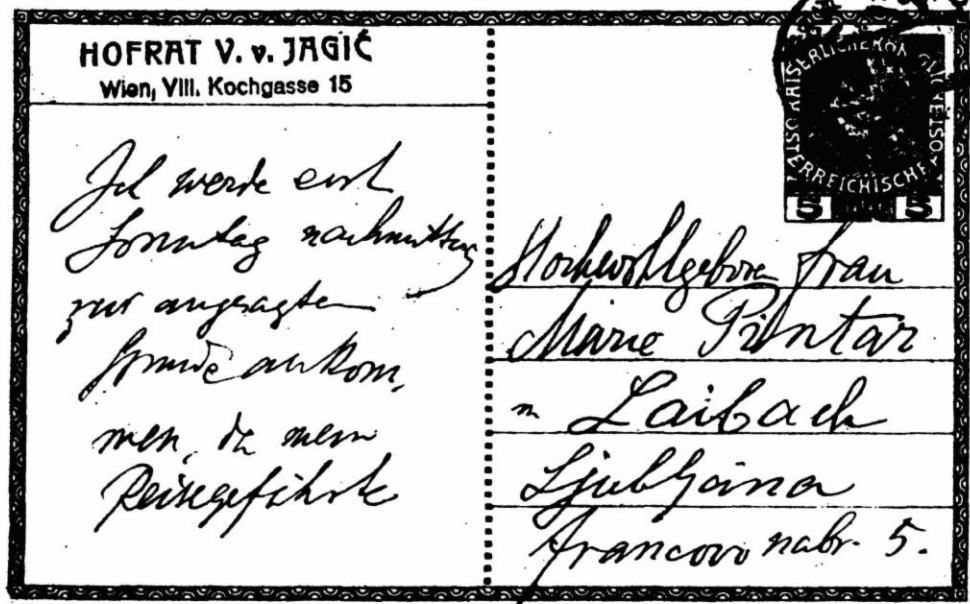 HOFRAT V. v. JAGIĆ
Wien, VIII. Kochgasse 15
Ich werde erst
Sonntag nachmittag
zur angesagten
Stunde ankom,
men, da mein
Reisegefährte
KAISERLICHE KÖNIGLICHE ÖSTERREICHISCHE
5 5
Hochwohlgeboren Frau
Marie Pintar
in Laibach
Ljubljana
Francovo nabr. 5.